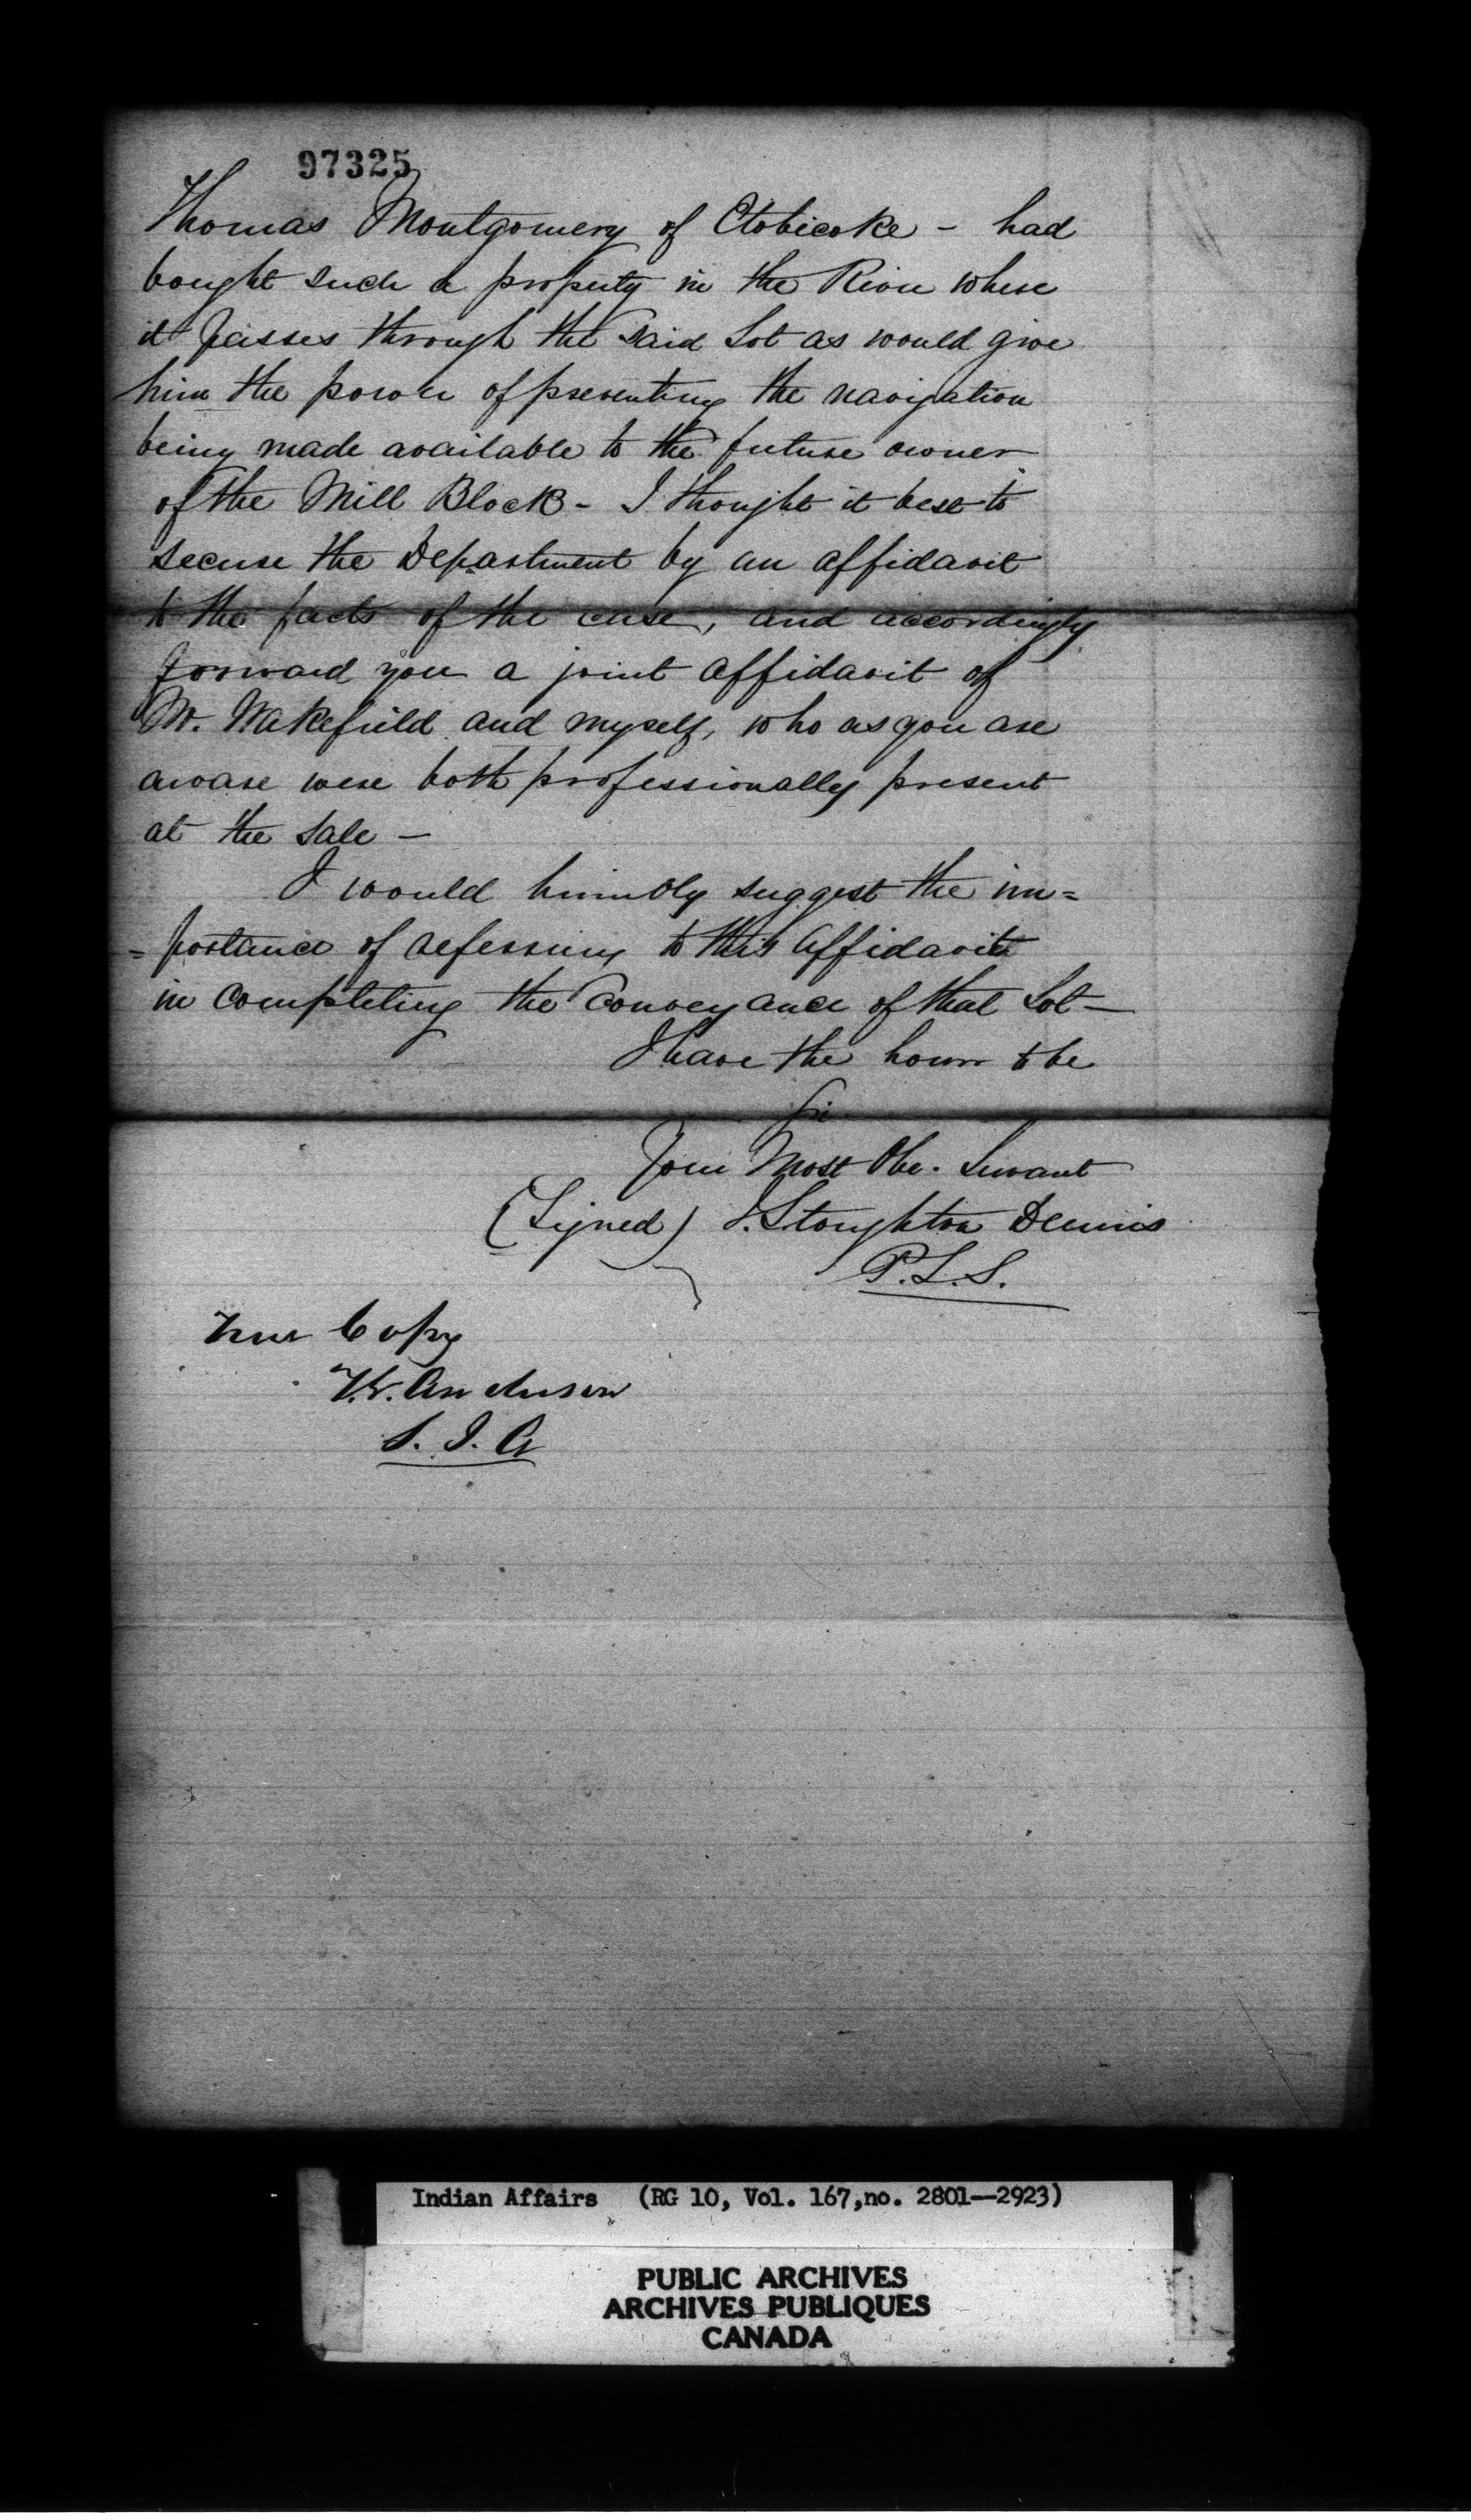 97325
Thomas Montgomery of Etobicoke - had
bought such a property in the River where
it passes through the said Lot as would give
him the power of preventing the navigation
being made available to the future owner
of the Mill Block - I thought it best to
secure the Department by an affidavit
to the facts of the case, and accordingly
forward you a joint affidavit of
Mr. Wakefield and myself, who as you are
aware were both professionally present
at the Sale -
I would humbly suggest the im=
=portance of referring to this affidavit
in completing the Conveyance of that Lot -
I have the honor to be
Sir
Your Most Obe. Servant
(Signed) J. Stoughton Dennis
P.L.S.
True Copy
T.G. Anderson
S.I.A
Indian Affairs (RG 10, Vol. 167,no. 2801--2923)
PUBLIC ARCHIVES
ARCHIVES PUBLIQUES
CANADA